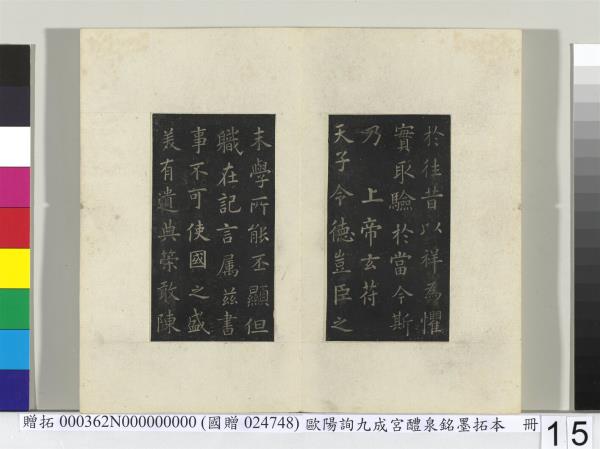 於往昔以祥為懼
實取驗於當今斯
乃 上帝玄符
天子令德豈臣之
末學所能丕顯但
職在記言屬茲書
事不可使國之盛
美有遺典策敢陳
贈拓 000362N000000000 (國贈 024748) 歐陽詢九成宮醴泉銘墨拓本 冊
15